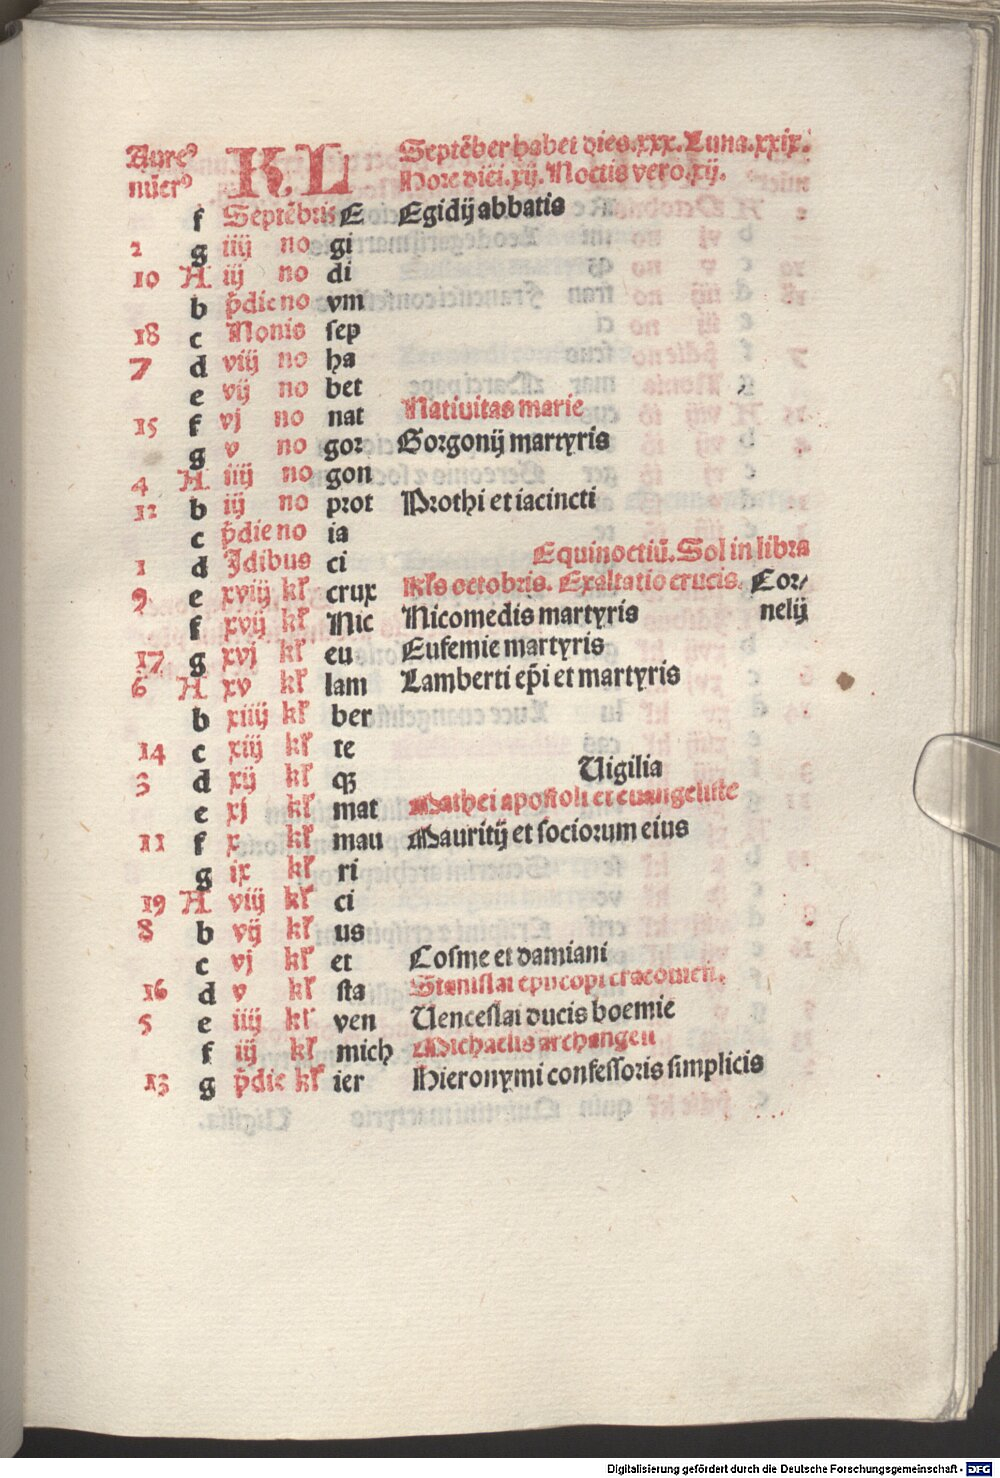 Aure⁹ KL Septẽber habet dies.xxx.Luna.xxix.
nũer⁹ Hore diei.xij.Noctis vero.xij.
f Septẽbris E Egidij abbatis
2 g iiij no gi
10 A iij no di
b p̃die no vm
18 c Nonis sep
7 d viij no ha
e vij no bet
15 f vj no nat Natiuitas marie
g v no gor Gorgonij martyris
4 A iiij no gon
12 b iij no prot Prothi et iacincti
c p̃die no ia
1 d Jdibus ci Equinoctiũ.Sol in libra
9 e xviij kl̃ crux kl̃s octobris. Exaltatio crucis. Cor⸗
f xvij kl̃ Nic Nicomedis martyris nelij
17 g xvj kl̃ eu Eufemie martyris
6 A xv kl̃ lam Lamberti ep̃i et martyris
b xiiij kl̃ ber
14 c xiij kl̃ te
3 d xij kl̃ qꝫ Uigilia
e xj kl̃ mat Mathei apostoli et euangeliste
11 f x kl̃ mau Mauritij et sociorum eius
g ix kl̃ ri
19 A viij kl̃ ci
8 b vij kl̃ us
c vj kl̃ et Cosme et damiani
16 d v kl̃ sta Stanislai episcopi cracouien.
5 e iiij kl̃ ven Uenceslai ducis boemie
f iij kl̃ mich Michaelis archangeli
13 g p̃die kl̃ ier Hieronymi confessoris simplicis
Digitalisierung gefördert durch die Deutsche Forschungsgemeinschaft - DFG